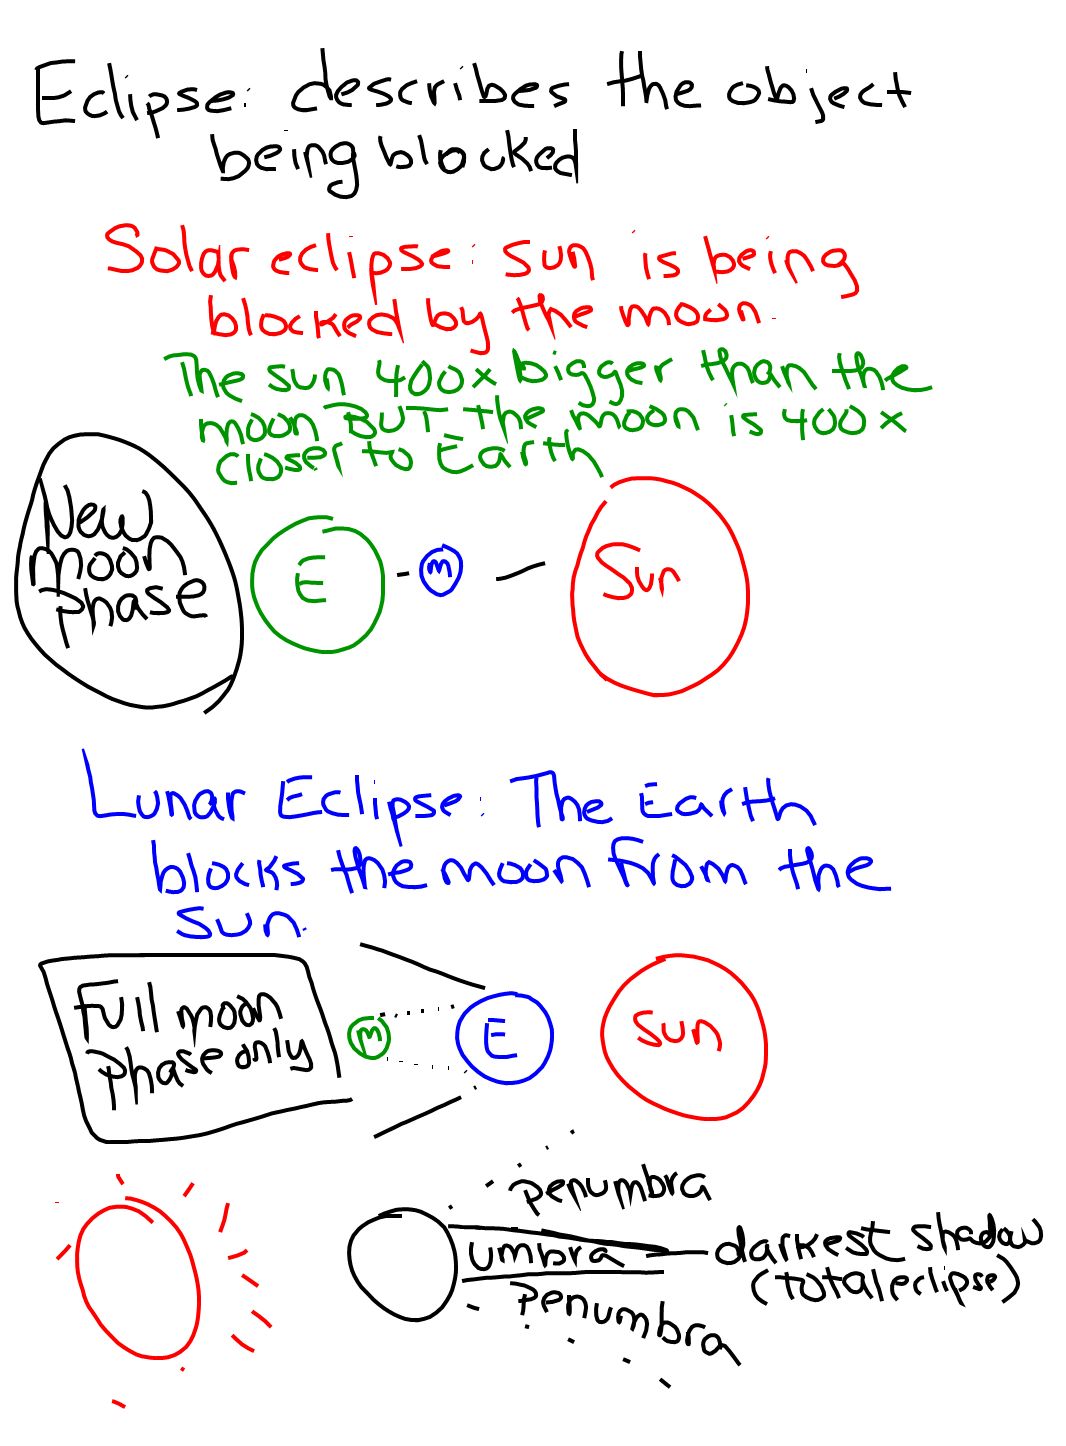 Eclipse: describes the object
being blocked
Solar eclipse: sun is being
blocked by the moon.
The sun 400x bigger than the
moon BUT the moon is 400x
closer to Earth
New
moon
phase
E
m
Sun
Lunar Eclipse: The Earth
blocks the moon from the
sun.
Full moon
phase only
M
E
Sun
penumbra
umbra
darkest shadow
(total eclipse)
Penumbra